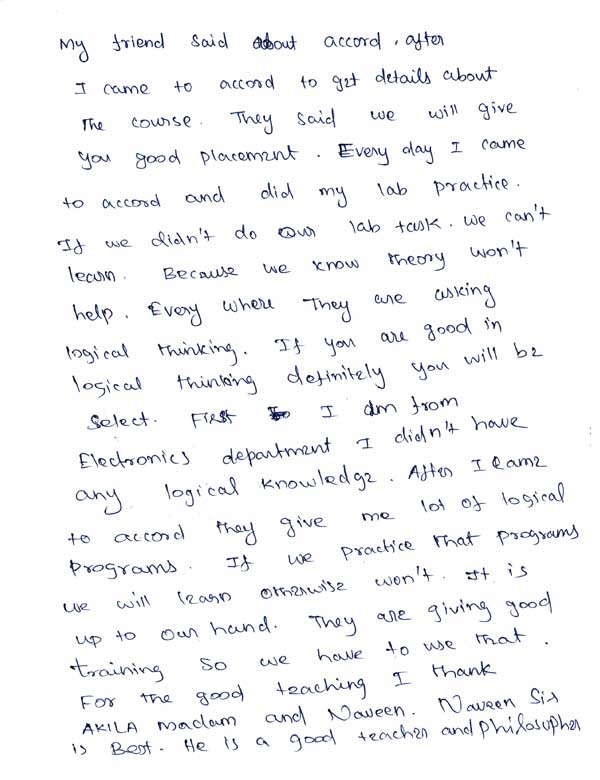 My friend said about accord, after
I came to accord to get details about
the course. They said we will give
you good placement. Every day I came
to accord and did my lab practice.
If we didn't do our lab task. we can't
learn. Because we know theory won't
help. Every where They are asking
logical thinking. If you are good in
logical thinking definitely you will be
select. First I am from
Electronics department I didn't have
any logical knowledge. After I came
to accord they give me lot of logical
programs. If we practice that programs
we will learn otherwise won't. It is
up to our hand. They are giving good
training so we have to use that.
For the good teaching I thank
AKILA madam and Naveen. Naveen Sir
is Best. He is a good teacher and philosopher